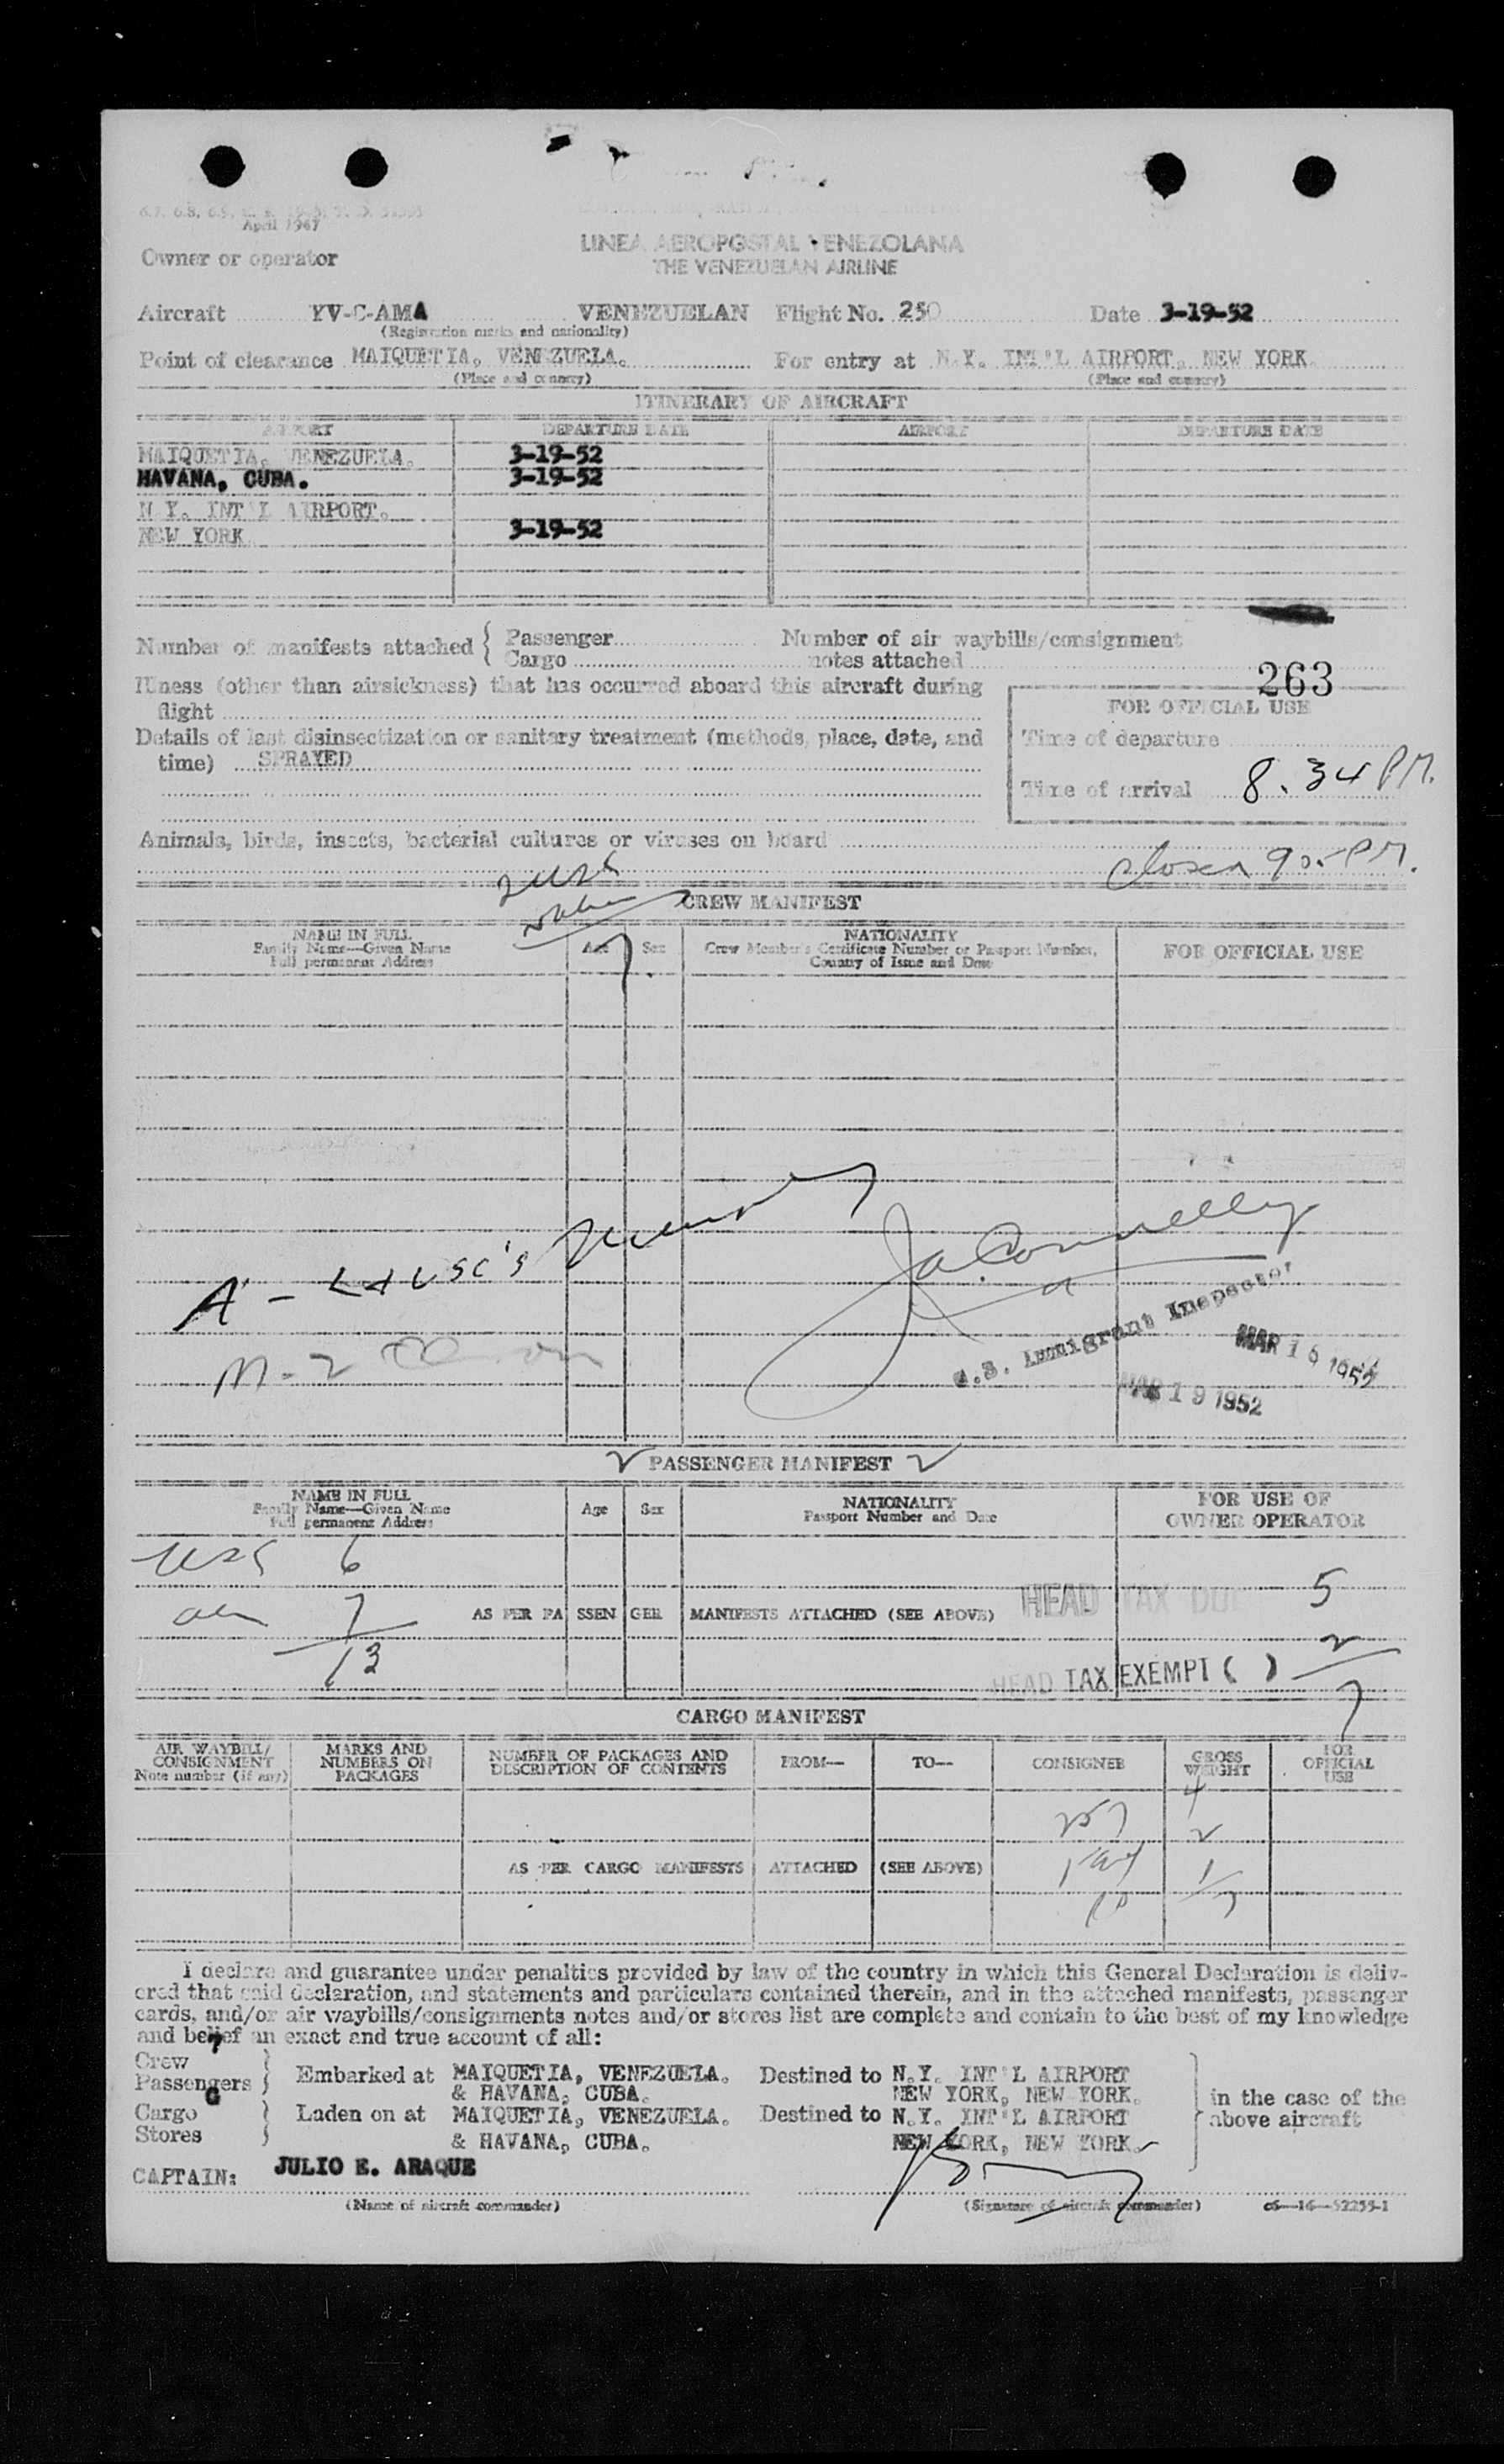 April 1947
LINEA AEROPOSTAL VENEZOLANA
THE VENEZUELAN AIRLINE
Owner or operator
Aircraft YV-C-AMA VENEZUELAN Flight No. 250 Date 3-19-52
(Registration marks and nationality)
Point of clearance MAIQUETIA, VENEZUELA. For entry at N.Y. INT'L AIRPORT, NEW YORK.
(Place and country) (Place and country)
ITINERARY OF AIRCRAFT
AIRPORT DEPARTURE DATE AIRPORT DEPARTURE DATE
MAIQUETIA, VENEZUELA. 3-19-52
HAVANA, CUBA. 3-19-52
N.Y. INT'L AIRPORT.
NEW YORK 3-19-52
Number of manifests attached { Passenger Number of air waybills/consignment
Cargo notes attached
263
Illness (other than airsickness) that has occurred aboard this aircraft during
flight
FOR OFFICIAL USE
Details of last disinsectization or sanitary treatment (methods, place, date, and
time) SPRAYED
Time of departure
Time of arrival 8.34 PM.
Animals, birds, insects, bacterial cultures or viruses on board
Closed 905 PM.
CREW MANIFEST
NAME IN FULL
Family Name—Given Name
Full permanent Address
Age Sex
NATIONALITY
Crew Member's Certificate Number or Passport Number,
Country of Issue and Date
FOR OFFICIAL USE
7
A - USC's
J.A. Connelly
U.S. Immigrant Inspector
M-2
MAR 16 1952
MAR 19 1952
PASSENGER MANIFEST
NAME IN FULL
Family Name—Given Name
Full permanent Address
Age Sex
NATIONALITY
Passport Number and Date
FOR USE OF
OWNER OPERATOR
USC 6
7 AS PER PASSENGER MANIFESTS ATTACHED (SEE ABOVE) HEAD TAX DUE 5
13 HEAD TAX EXEMPT ( ) 2
7
CARGO MANIFEST
AIR WAYBILL/
CONSIGNMENT
Note number (if any)
MARKS AND
NUMBERS ON
PACKAGES
NUMBER OF PACKAGES AND
DESCRIPTION OF CONTENTS
FROM— TO— CONSIGNEE
GROSS
WEIGHT
FOR
OFFICIAL
USE
4
257 2
AS PER CARGO MANIFESTS ATTACHED (SEE ABOVE) 1
7
I declare and guarantee under penalties provided by law of the country in which this General Declaration is deliv-
ered that said declaration, and statements and particulars contained therein, and in the attached manifests, passenger
cards, and/or air waybills/consignments notes and/or stores list are complete and contain to the best of my knowledge
and belief an exact and true account of all:
Crew
Passengers } Embarked at MAIQUETIA, VENEZUELA. Destined to N.Y. INT'L AIRPORT
& HAVANA, CUBA. NEW YORK, NEW YORK.
Cargo
Stores } Laden on at MAIQUETIA, VENEZUELA. Destined to N.Y. INT'L AIRPORT
& HAVANA, CUBA. NEW YORK, NEW YORK.
in the case of the
above aircraft
CAPTAIN: JULIO E. ARAQUE
(Name of aircraft commander) (Signature of aircraft commander) c6—16—52255-1